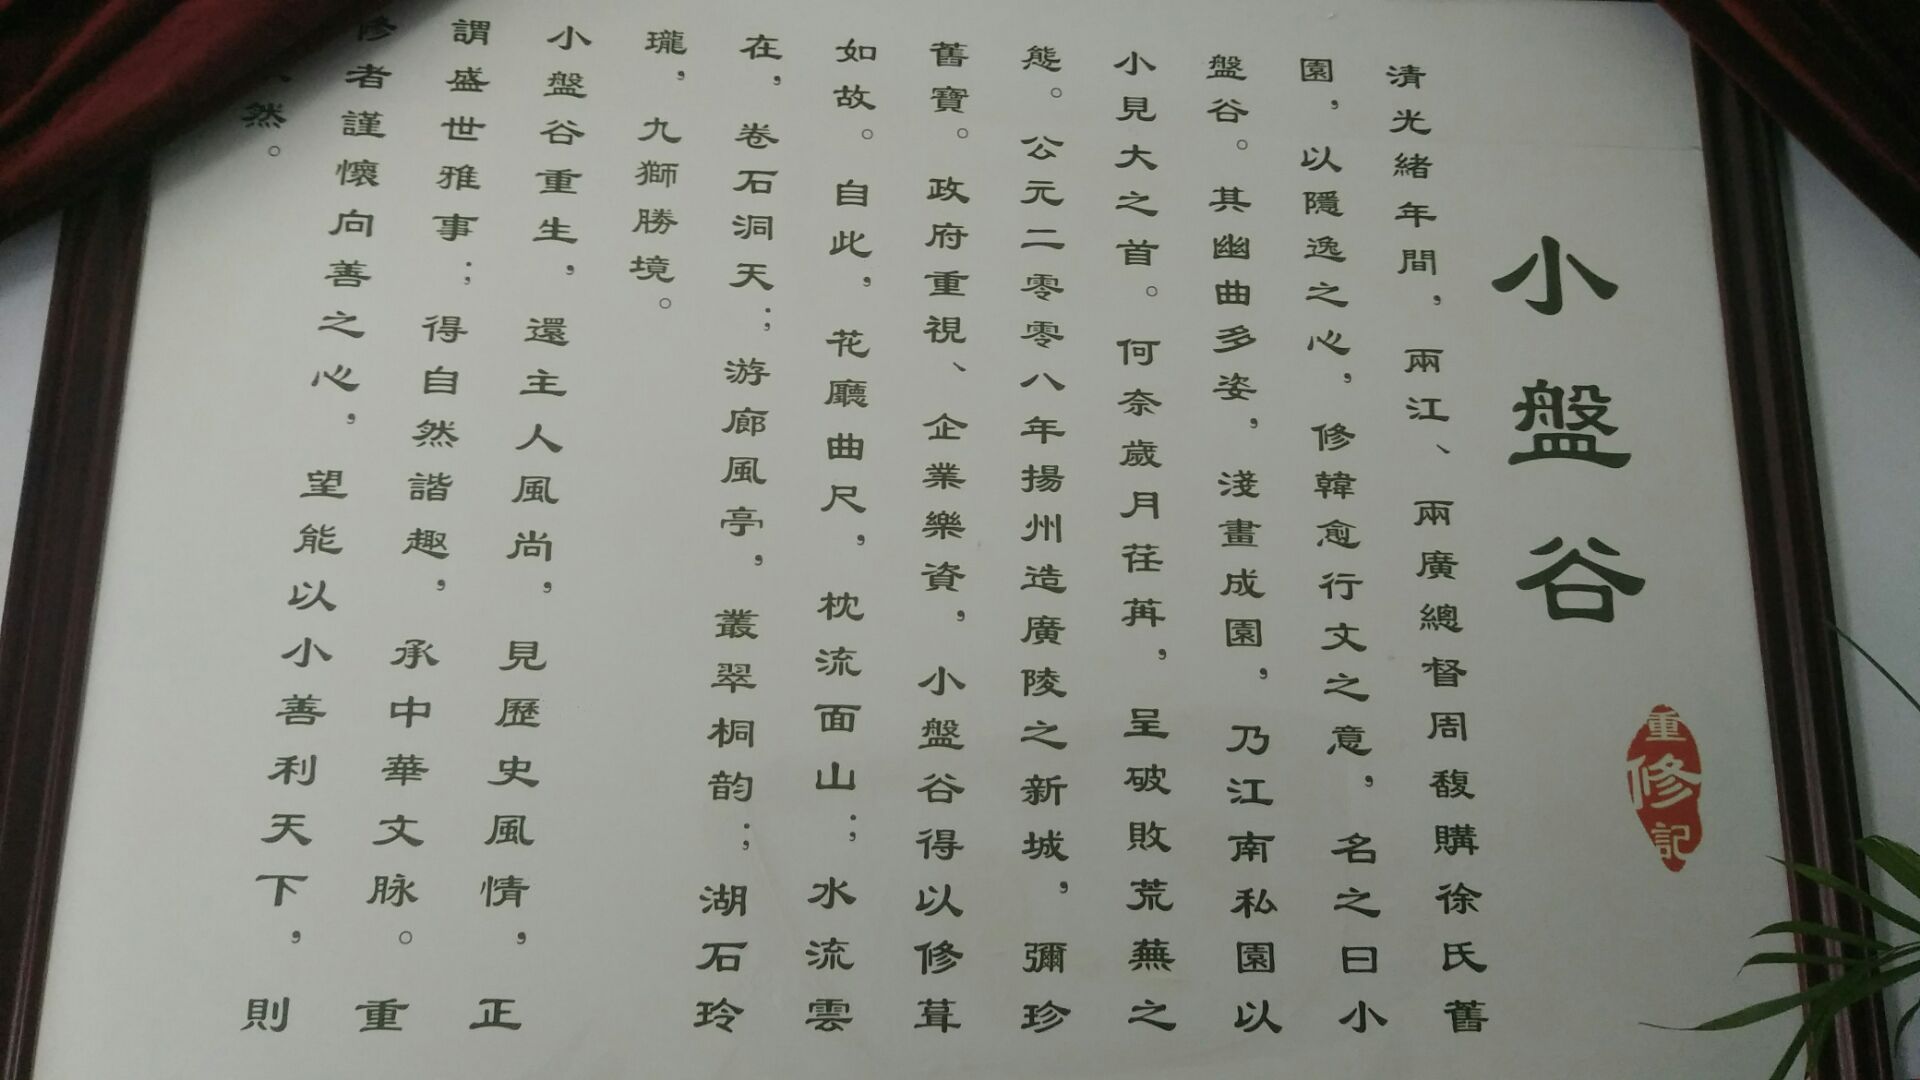 小盤谷
重修記
清光緒年間，兩江、兩廣總督周馥購徐氏舊
園，以隱逸之心，修韓愈行文之意，名之曰小
盤谷。其幽曲多姿，淺畫成園，乃江南私園以
小見大之首。何奈歲月荏苒，呈破敗荒蕪之
態。公元二零零八年揚州造廣陵之新城，彌珍
舊寶。政府重視、企業樂資，小盤谷得以修葺
如故。自此，花廳曲尺，枕流面山；水流雲
在，卷石洞天；游廊風亭，叢翠桐韵；湖石玲
瓏，九獅勝境。
小盤谷重生，還主人風尚，見歷史風情，正
謂盛世雅事；得自然諧趣，承中華文脉。重
修者謹懷向善之心，望能以小善利天下，則
然。